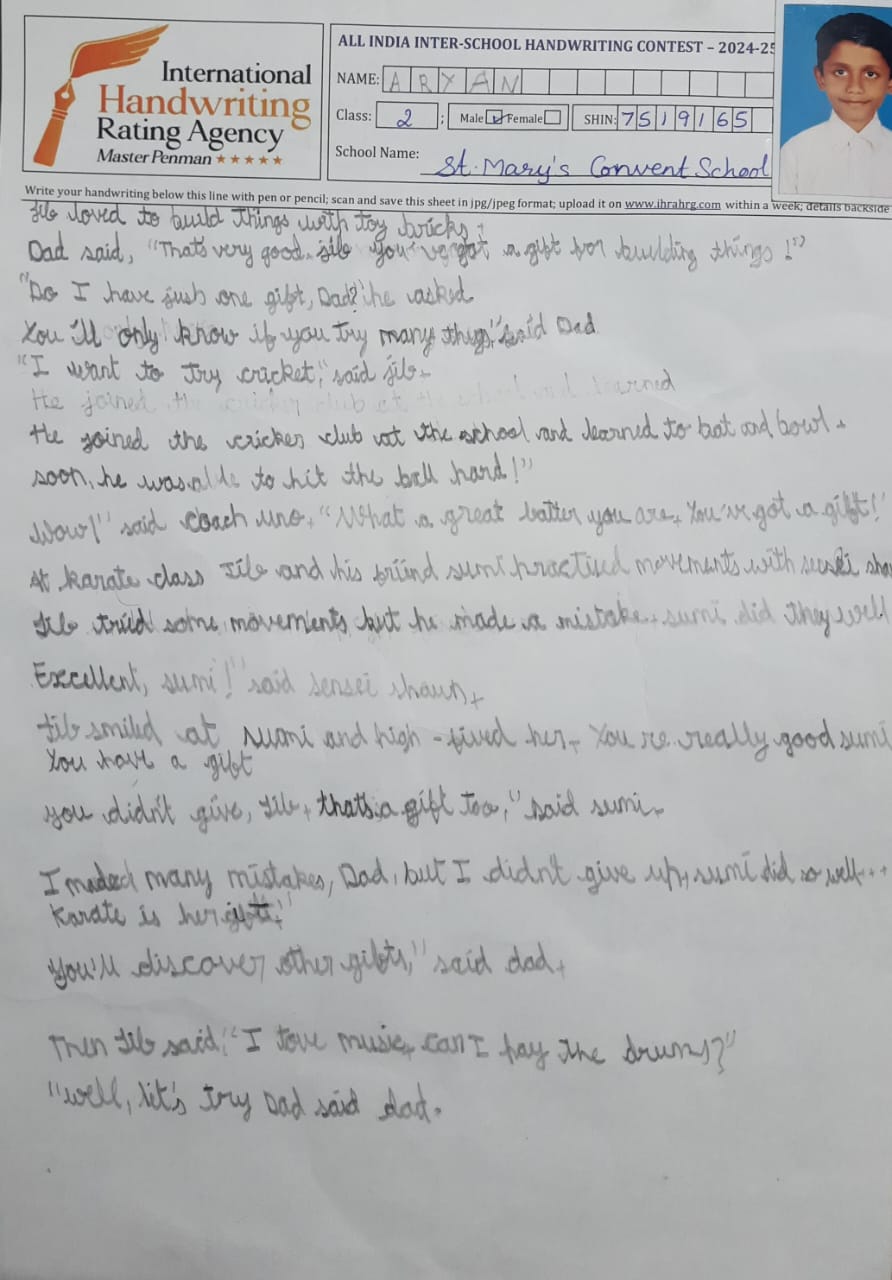 International
Handwriting
Rating Agency
Master Penman ★★★★★
ALL INDIA INTER-SCHOOL HANDWRITING CONTEST – 2024-25
NAME: ARYAN
Class: 2 ; Male ☑ Female ☐ SHIN: 7519165
School Name: St. Mary's Convent School
Write your handwriting below this line with pen or pencil; scan and save this sheet in jpg/jpeg format; upload it on www.ihrahrg.com within a week; details backside
Jilo loved to build things with toy bricks.
Dad said, "That's very good. jilo you've got a gift for building things!"
"Do I have just one gift, Dad?" he asked
You'll only know if you try many , said Dad
"I want to try cricket," said jilo.
He joined the club at the school and learned
He joined the cricket club at the school and learned to bat and bowl.
soon, he was to hit the ball hard!"
Wow!" said coach uno, "What a great batter you are, You've got a gift!"
At karate class Jilo and his sumi practised movements with sensei
Jilo tried some movements but he made a mistake. sumi did they well
Excellent, sumi!" said sensei shaun.
Jilo smiled at sumi and high-fived her. You're really good sumi
You have a gift
you didn't give, Jilo, thats a gift too," said sumi.
I many mistakes, Dad, but I didn't give up, sumi did so well...
Karate is her
You'll discover other gifts," said dad.
Then Jilo said, "I love music, can I pay the drums?"
"well, let's try Dad said dad.